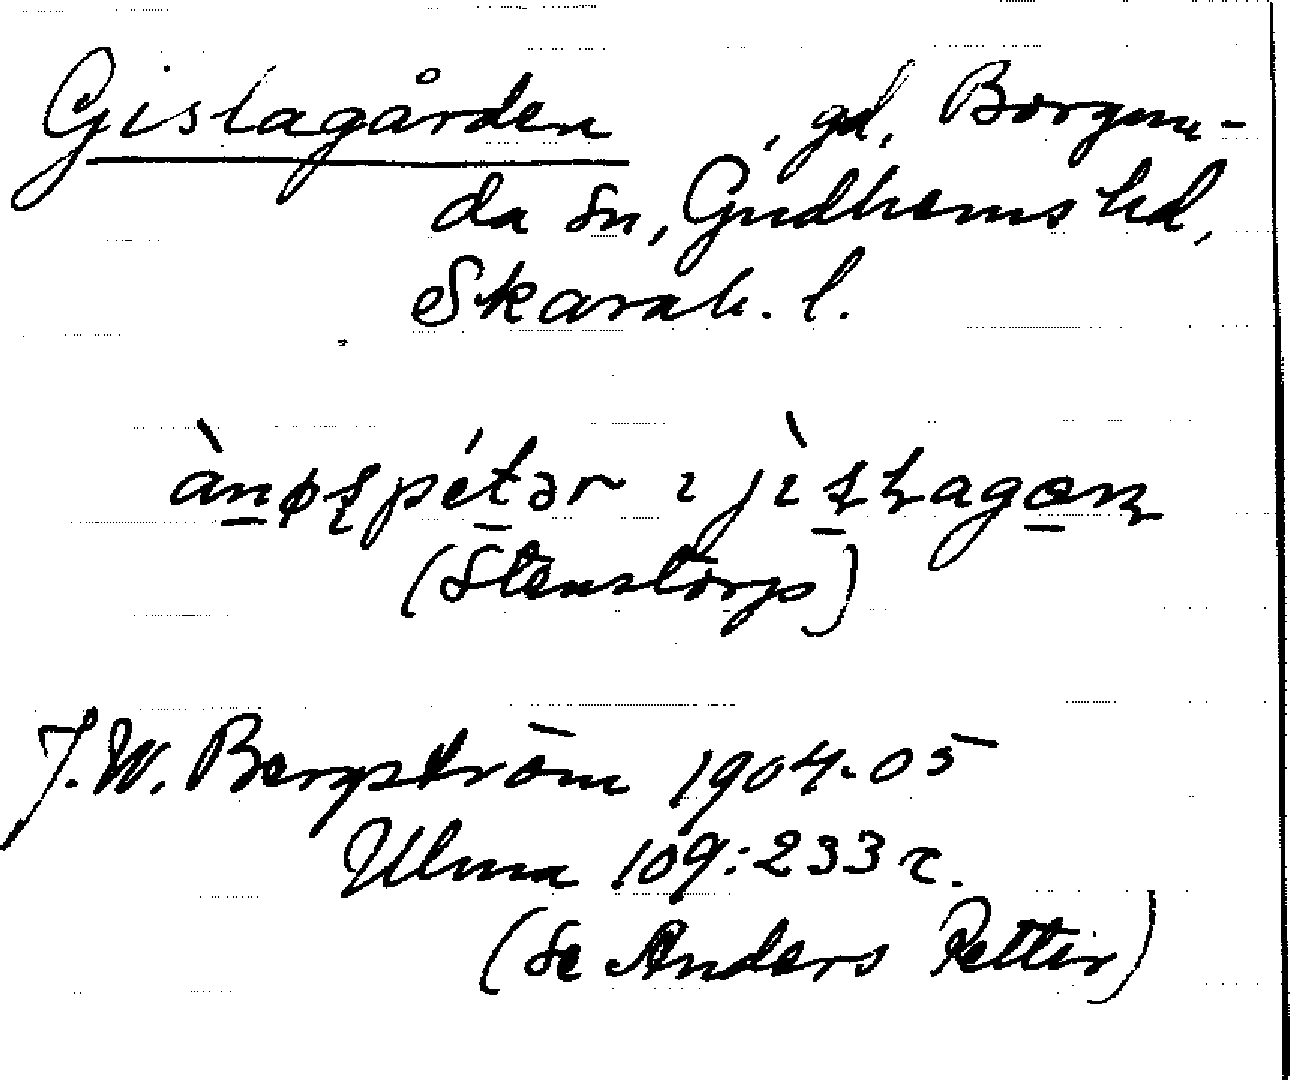 Gislagården, gd, Borgun-
da sn, Gudhems hd,
Skarab. l.
(Stenstorp)
J.W. Bergström 1904-05
Ulma 109:233 r.
(Se Anders Petter)